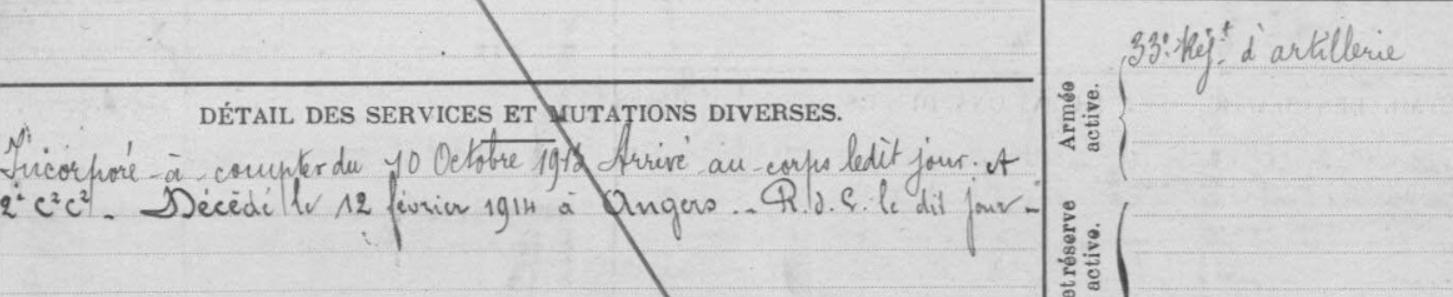 33e Régt d'artillerie
DÉTAIL DES SERVICES ET MUTATIONS DIVERSES.
Incorporé à compter du 10 Octobre 1913 Arrivé au corps ledit jour et
2e C2C2. Décédé le 12 février 1914 à Angers. R.d.C. le dit jour.
Armée
active.
et réserve
active.